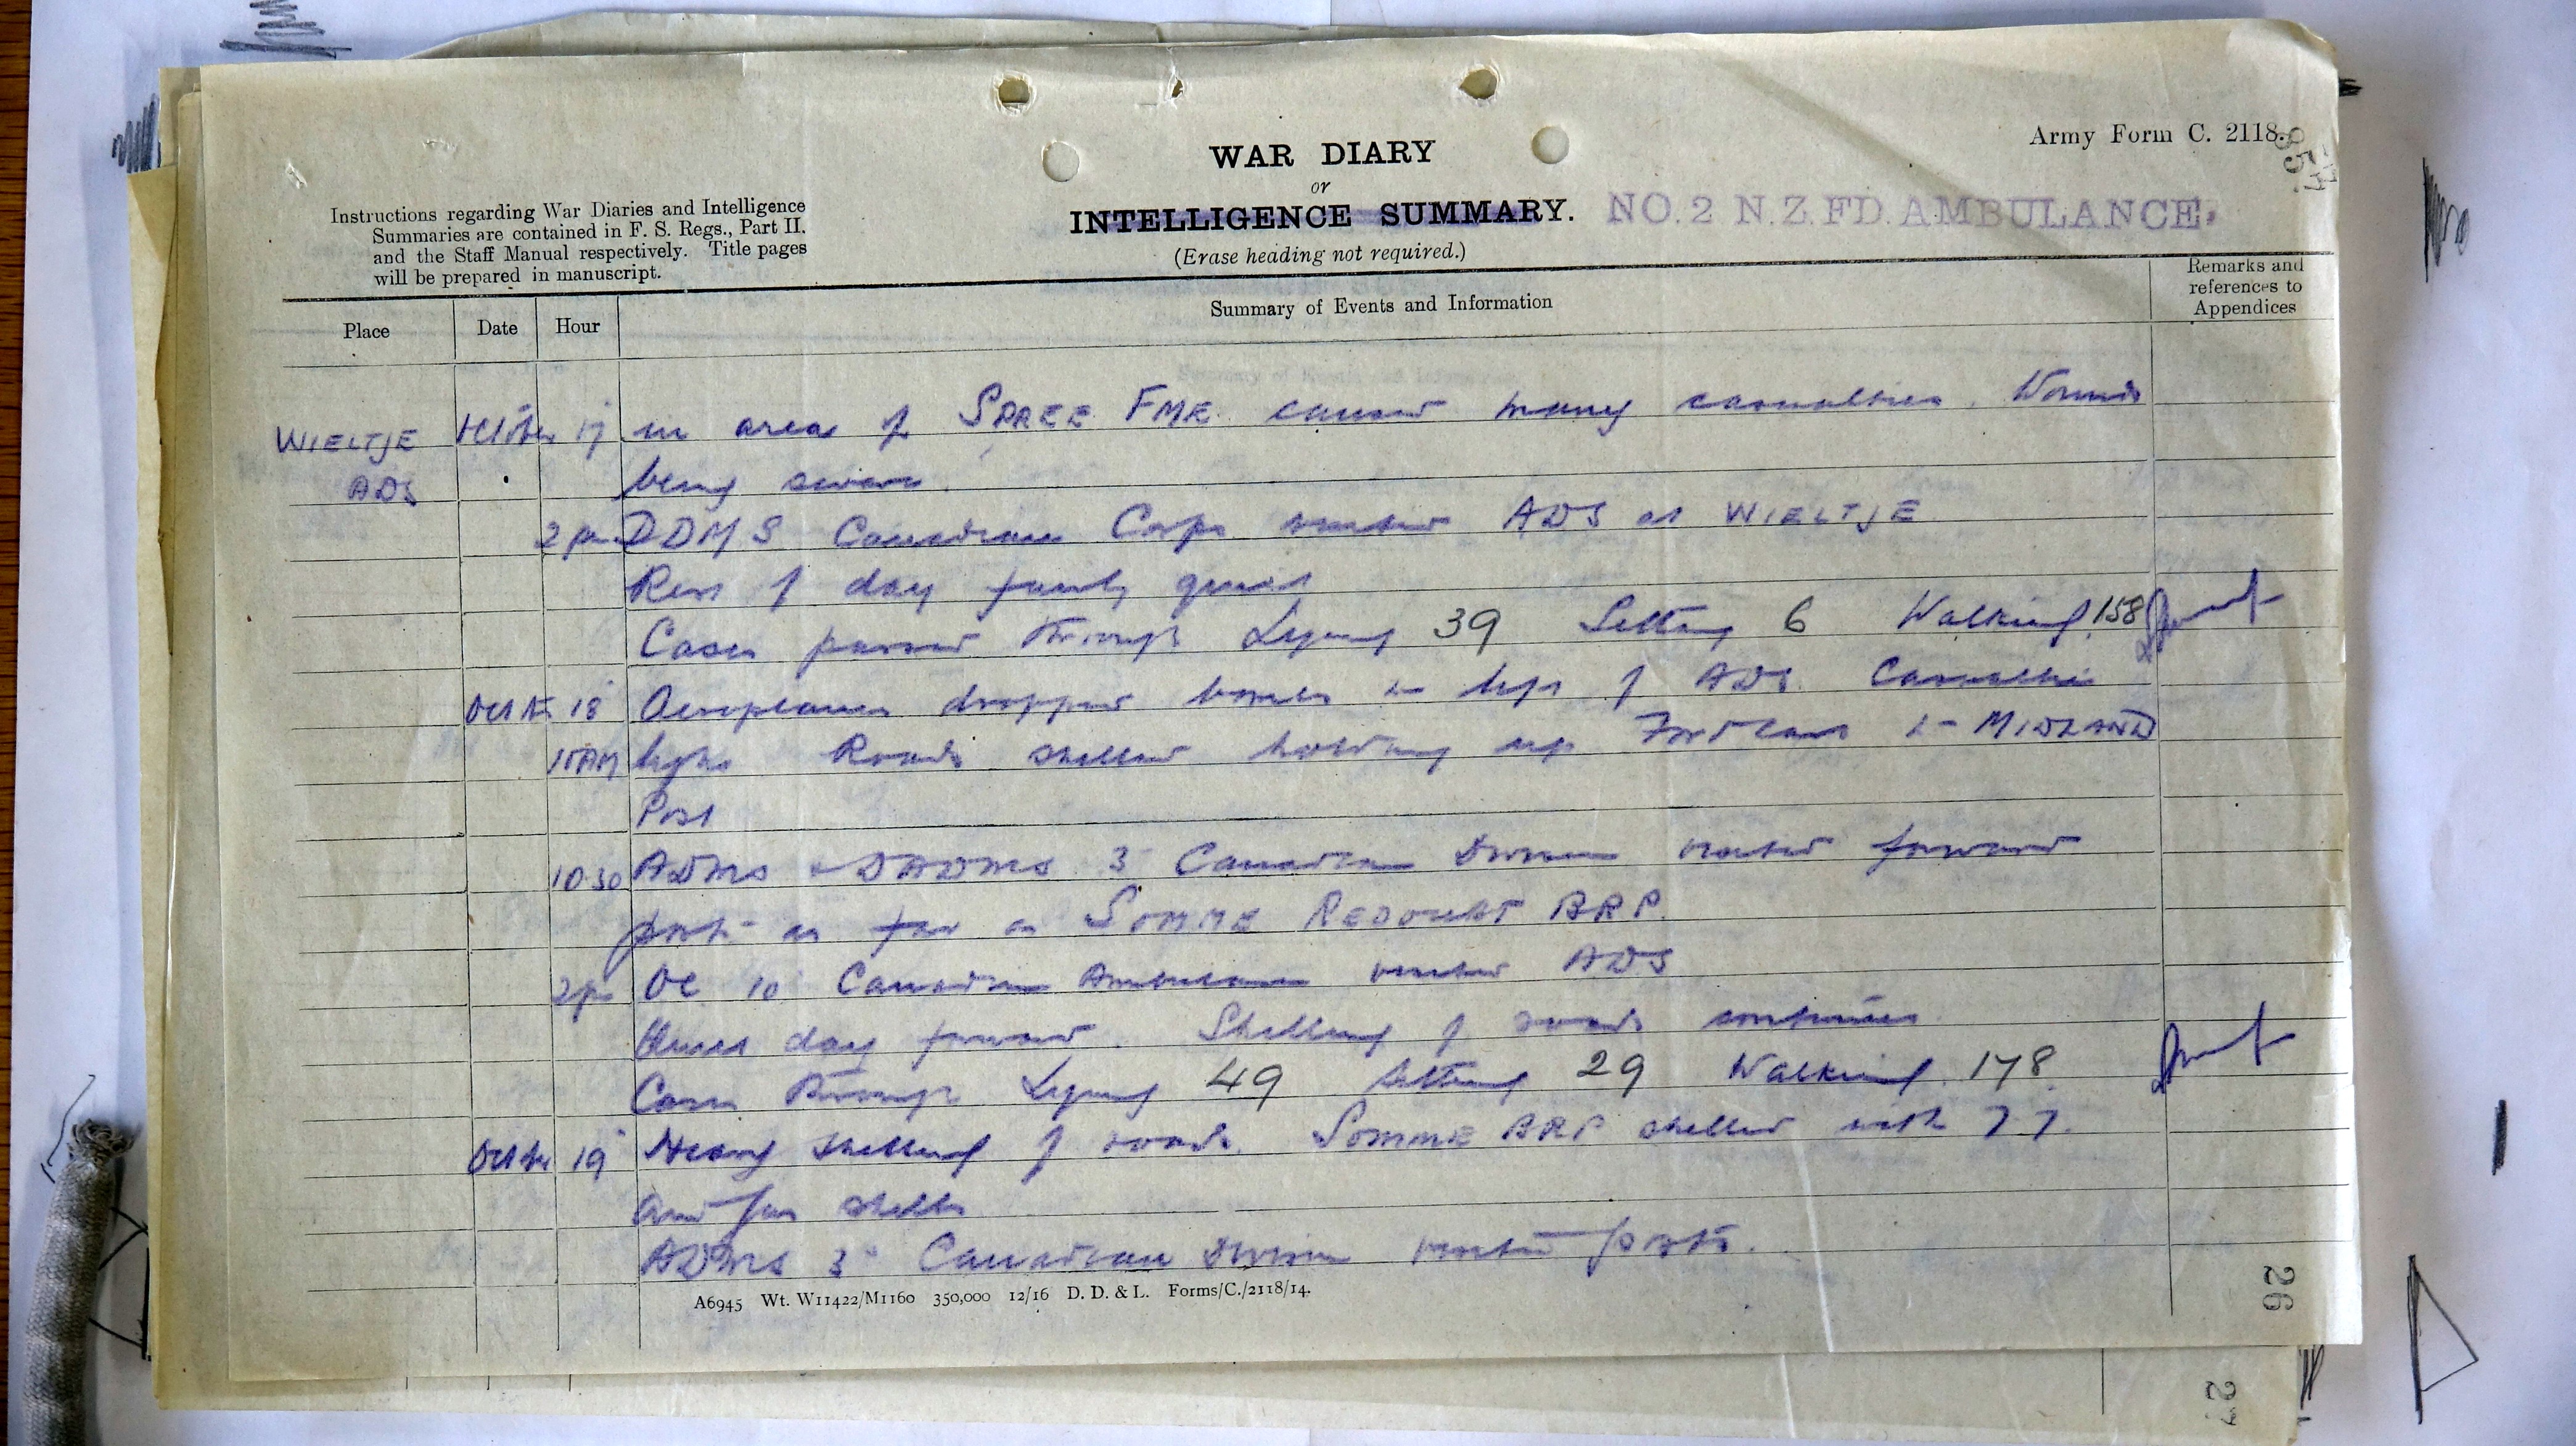 Army Form C. 2118.
WAR DIARY
or
INTELLIGENCE SUMMARY.
NO. 2 N.Z. FD. AMBULANCE.
(Erase heading not required.)
Instructions regarding War Diaries and Intelligence
Summaries are contained in F. S. Regs., Part II.
and the Staff Manual respectively. Title pages
will be prepared in manuscript.
Place Date Hour Summary of Events and Information Remarks and
references to
Appendices
WIELTJE October 17 in area of SPREE FME caused many casualties. Wounds
ADS being severe
2 pm DDMS Canadian Corps visited ADS at WIELTJE
Rest of day fairly quiet
Cases passed through Lying 39 Sitting 6 Walking 158
Octbr 18 Aeroplanes dropped bombs in of ADS. Casualties
10 AM light Roads shelled holding up Ford cars to MIDLAND
Post
10.30 ADMS & DADMS 3 Canadian Division visited forward
posts as far as SOMME REDOUBT ARP.
2 pm OC 10 Canadian Ambulance visited ADS
Quiet day forward. Shelling of roads continues
Cases through Lying 49 Sitting 29 Walking 178
Octbr 19 Heavy shelling of roads. SOMME ARP shelled with 77.
and gas shells
ADMS 3 Canadian Division visited posts.
A6945 Wt. W11422/M1160 350,000 12/16 D. D. & L. Forms/C./2118/14.
26
27